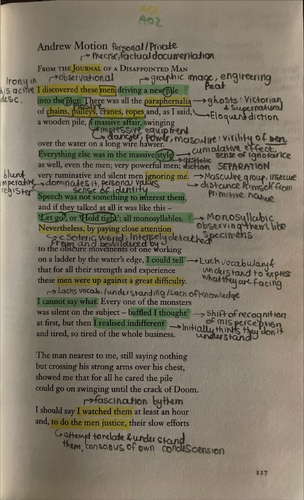 A02
Andrew Motion Personal/Private
→ precise, factual documentation
FROM THE JOURNAL OF A DISAPPOINTED MAN
Irony in
his active
desc.
→ observational
→ graphic image, engineering
feat
I discovered these men driving a new pile
into the pier. There was all the paraphernalia
→ ghosts: Victorian
& supernatural
of chains, pulleys, cranes, ropes and, as I said,
→ Eloquent diction
a wooden pile, a massive affair, swinging
→ impressive equipment
→ danger, power, masculine: virility of men
over the water on a long wire hawser.
cumulative effect,
sense of ignorance
Everything else was in the massive style
as well, even the men; very powerful men;
diction SEPARATION
very ruminative and silent men ignoring me.
→ Masculine group, insecure
distance himself from
primitive nature
blunt
imperative
register
→ dominates it, personal values
sense of identity
Speech was not something to interest them,
and if they talked at all it was like this –
'Let go', or 'Hold tight': all monosyllables.
→ Monosyllabic
observing them like
specimens
Nevertheless, by paying close attention
→ esoteric world: intensely detached
from and bewildered by
to the obscure movements of one working
on a ladder by the water's edge, I could tell
→ Lack of vocabulary &
understand to express
what they are facing
that for all their strength and experience
these men were up against a great difficulty.
→ Lacks vocab/understanding/lack of knowledge
I cannot say what. Every one of the monsters
was silent on the subject – baffled I thought
→ Shift of recognition
of misperception
at first, but then I realised indifferent
→ Initially thinks they don't
understand
and tired, so tired of the whole business.
The man nearest to me, still saying nothing
but crossing his strong arms over his chest,
showed me that for all he cared the pile
could go on swinging until the crack of Doom.
→ fascination by them
I should say I watched them at least an hour
and, to do the men justice, their slow efforts
→ attempt to relate & understand
them, conscious of own condescension
117